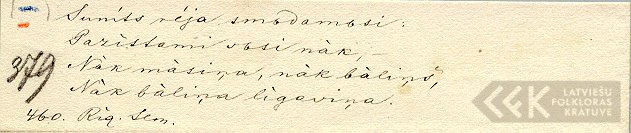 Sunīts rēja smīdamosi:
Pazīstami viesi nāk, —
379
Nāk māsiņa, nāk bāliņš,
Nāk bāliņa līgaviņa.
460. Rīg. Sem.
LATVIEŠU
FOLKLORAS
KRATUVE